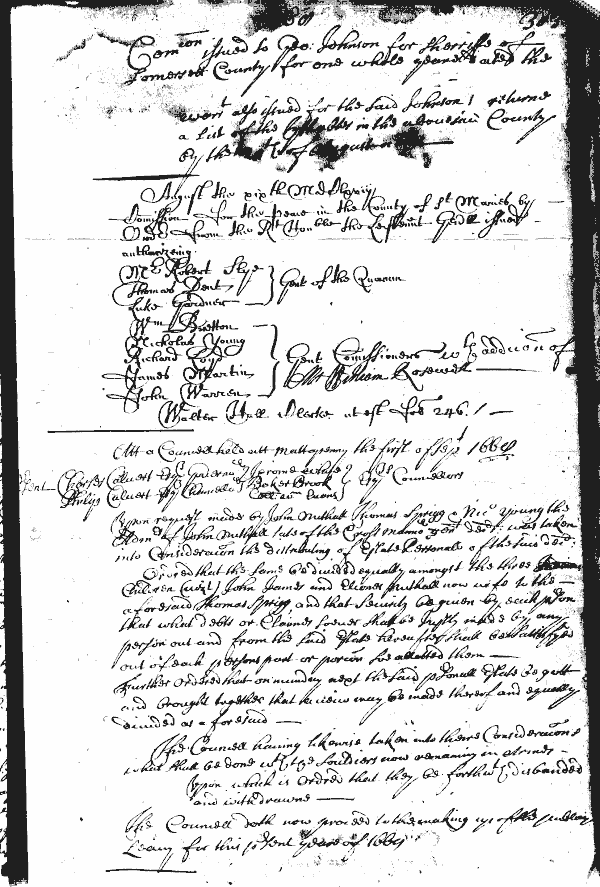 Comion issued to Geo: Johnson for Sherriffe of
Somersett County for one whole yeare & ated the
Writt also issued for the said Johnson returne
a list of the tythables in the aforesaid County
by the of August
August the xixth
Comission for the peace in the County of St Maries by
Order from the Rt Honble the Leiftennt Genll issued
authorizeing
Mr Robert Slye
Thomas Dent
Luke Gardner
Gent of the Quorum
Wm Bretton
Nicholas Young
Richard Loyd
James Martin
John Warren
Gent Comissioners wth addicion of
Mr William Rosewell
Walter Hall Clerke ut est fol 246
Att a Councell held att Mattapenny the first of 1669
sent Charles Calvert Esqr Governor Jerome White
Philip Calvert Esqr Chancellr Baker Brooke Esqr Councellors
Willm Evans
Upon request made by John Nuthall Thomas Sprigg & Nic: Young the
of John Nuthall late of the Cross Mannor gen decd: was taken
into Consideracon the distributing of Estate Personall of the said decd
Ordred that the same be divided equally amongst the three
Children (vizt) John James and Elianor Nuthall now wife to the
aforesaid Thomas Sprigg and that Security be given by each pson
that what debts or Claimes soever shall be justly made by any
person out and from the said Estate hereafter shall be sattisfyed
out of each persons part or porcon soe allotted them
Further ordered that on munday next the said psonall Estate be gott
and brought together that a view may be made thereof and equally
divided as aforesaid
The Councell having likewise taken into theire Consideracons
what shall be done wth the souldiers now remaining in Armes
Upon which is ordred that they be forthwth disbanded
and withdrawne
The Councell doth now proceed to the making up of the publiq
Leavy for this psent yeare of 1669